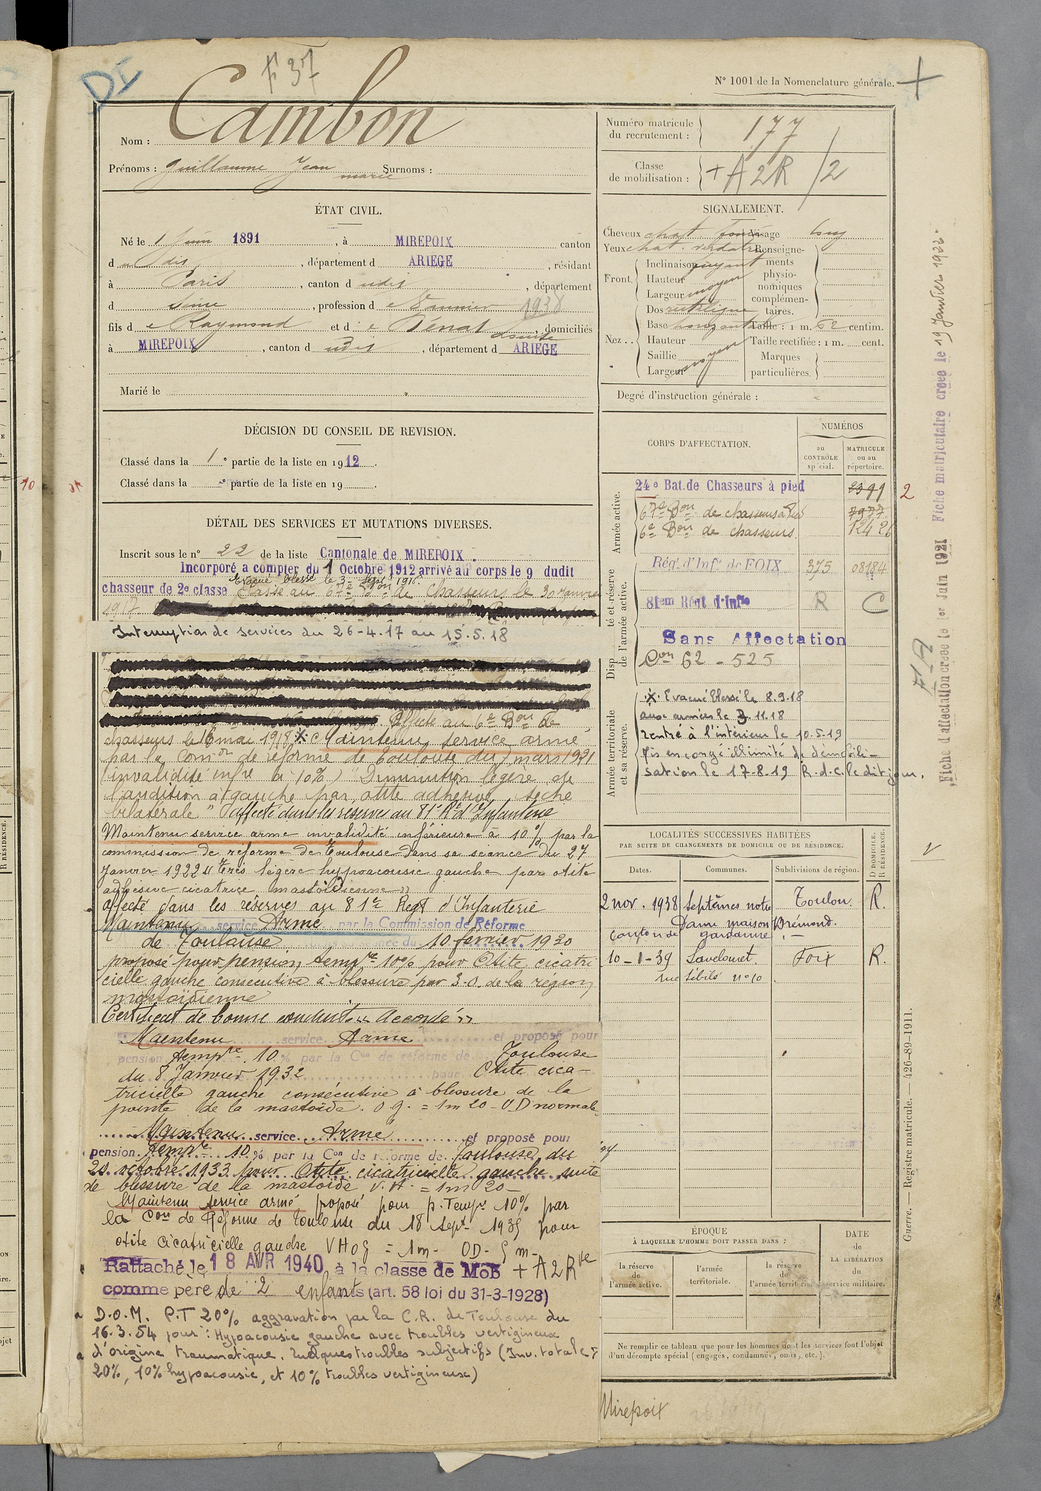 DI
F 37
N° 1001 de la Nomenclature générale.
Nom : Cambon
Prénoms : Guillaume Jean marie Surnoms :
Numéro matricule du recrutement : 177
Classe de mobilisation : + A2R /2
ÉTAT CIVIL.
Né le 1 Juin 1891, à MIREPOIX canton
d dudit, département d ARIEGE, résidant
à Paris, canton d udit, département
d Seine, profession d e Vannier 1938
fils d e Raymond et d e Bénat Louise, domiciliés
à MIREPOIX, canton d udit, département d ARIEGE
Marié le
SIGNALEMENT.
Cheveux chat foncé Visage long
Yeux chat. verdâtre Renseigne-
ments
physio-
nomiques
complémen-
taires.
Front.
Inclinaison fuyant
Hauteur moyen
Largeur moyen
Nez..
Dos rectiligne
Base horizontale Taille : 1 m. 62 centim.
Hauteur Taille rectifiée : 1 m. cent.
Saillie moyen Marques
Largeur particulières.
Degré d'instruction générale :
DÉCISION DU CONSEIL DE REVISION.
Classé dans la 1e partie de la liste en 1912.
Classé dans la e partie de la liste en 19 .
DÉTAIL DES SERVICES ET MUTATIONS DIVERSES.
Inscrit sous le n° 22 de la liste Cantonale de MIREPOIX.
Incorporé à compter du 1 Octobre 1912 arrivé au corps le 9 dudit
Evacué blessé le 3 Sept 1916.
chasseur de 2e classe Passé au 67e Bon de Chasseurs le 30 janvier
1917.
Interruption de services du 26-4.17 au 15.5.18
Affecté au 6e Bon de
chasseurs le 16 mai 1918 * Maintenu service armé
par la Comon de réforme de Toulouse du 7 mars 1921
(invalidité infre à 10%) "Diminution légère de
l'audition à gauche par otite adhésive sèche
bilatérale" Affecté dans les réserves au 81e Rt d'Infanterie
Maintenu service armé invalidité inférieure à 10% par la
commission de réforme de Toulouse dans sa séance du 27
Janvier 1922 "très légère hypoacousie gauche par otite
adhésive cicatrice mastoïdienne"
affecté dans les réserves au 81e Regt d'Infanterie
Maintenu service Armé par la Commission de Réforme
de Toulouse séance du 10 février 1930
proposé pour pension tempre 10% pour Otite cicatri
cielle gauche consécutive à blessure par E.O. de la région
mastoïdienne
Certificat de bonne conduite "Accordé"
Maintenu service Armé et proposé pour
pension tempre 10 % par la Con de réforme de Toulouse
du 8 Janvier 1932 pour Otite cica-
tricielle gauche consécutive à blessure de la
pointe de la mastoïde. O.g. = 1m 20 - O D normale
Maintenu service Armé et proposé pour
pension tempre 10 % par la Con de réforme de Toulouse du
20 octobre 1933 pour Otite cicatricielle gauche suite
de blessure de la mastoïde V.H. = 1m 20 -
Maintenu service armé proposé pour p. Tempre 10% par
la Con de Réforme de Toulouse du 18 Sept 1935 pour
otite cicatricielle gauche VHOg = 1m - OD - 5 m -
Rattaché le 18 AVR 1940 à la classe de Mob + A2Rve
comme père de 2 enfants (art. 58 loi du 31-3-1928)
D.O.M. P.T 20% aggravation par la C.R. de Toulouse du
16.3.54 pour : Hypoacousie gauche avec troubles vertigineux
d'origine traumatique. Quelques troubles subjectifs (Inv. totale =
20%, 10% hypoacousie, et 10% troubles vertigineux)
CORPS D'AFFECTATION.
NUMÉROS
DU CONTRÔLE spécial.
MATRICULE ou au répertoire.
Armée active.
24e Bat. de Chasseurs à pied 2391 2
67e Bon de chasseurs à Pied 7977
6e Bon de chasseurs 12426
Disponibilité et réserve de l'armée active.
Régt d'Infie de FOIX 375 08184
81em Régt d'Infie R C
Sans Affectation
Con 62 - 525
Armée territoriale et sa réserve.
* Evacué blessé le 8.9.18
aux armées le 3.11.18
rentré à l'intérieur le 10.5.19
Mis en congé illimité de démobili-
sation le 17-8.19 R.d.c. le dit jour.
LOCALITÉS SUCCESSIVES HABITÉES
PAR SUITE DE CHANGEMENTS DE DOMICILE OU DE RÉSIDENCE.
Dates. Communes. Subdivisions de région. D DOMICILE. R RÉSIDENCE.
2 nov. 1938 Septèmes notre Toulon. R.
Dame maison Brémond.
canton de gardanne
10-1-39 Lavelanet. Foix R.
rue Liberté n° 10
ÉPOQUE
À LAQUELLE L'HOMME DOIT PASSER DANS :
la réserve de l'armée active.
l'armée territoriale.
la réserve de l'armée territoriale.
DATE de LA LIBÉRATION du service militaire.
Ne remplir ce tableau que pour les hommes dont les services font l'objet
d'un décompte spécial (engagés, condamnés, omis, etc.).
Mirepoix
Fiche matriculaire créée le 19 Janvier 1922.
Fiche d'affectation créée le 1er Juin 1921
Guerre. — Registre matricule. — 426-89-1911.